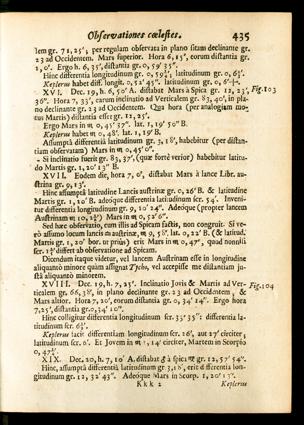 Observationes cœlestes. 435
lem gr. 71, 25', per regulam observata in plano sitam declinante gr.
23 ad Occidentem. Mars superior. Hora 6, 15', eorum distantia gr.
1, 0'. Ergo h. 6, 35', distantia gr. 0, 59' 35".
Hinc differentia longitudinum gr. 0, 59¼', latitudinum gr. 0, 6½'.
Keplerus habet diff. longit. 0, 52' 45". latitudinum gr. 0, 6'
XVI. Dec. 19, h. 6, 50' A. distabat Mars à Spica gr. 12, 23', Fig. 103
36". Hora 7, 33', earum inclinatio ad Verticalem gr. 83, 40', in pla-
no declinante gr. 23 ad Occidentem. Qua hora (per analogiam mo-
tus Martis) distantia esset gr. 12, 25'.
Ergo Mars in ♏ 0, 45' 37". lat. 1, 19' 50" B.
Keplerus habet ♏ 0, 48'. lat. 1, 19' B.
Assumptâ differentiâ latitudinum gr. 3, 18', habebitur (per distan-
tiam observatam) Mars in ♏ 0, 45' 0".
Si inclinatio fuerit gr. 83, 37', (quæ fortè verior) habebitur latitu-
do Martis gr. 1, 20' 13" B.
XVII. Eodem die, hora 7, 0', distabat Mars à lance Libr. au-
strina gr. 9, 13'.
Hinc assumptâ latitudine Lancis austrinæ gr. 0, 26' B. & latitudine
Martis gr. 1, 20' B. adeóque differentia latitudinum scr. 54'. Inveni-
tur differentia longitudinum gr. 9, 10' 24". Adeóque (propter lancem
Austrinam ♏ 10, 2½') Mars in ♏ 0, 52' 6".
Sed hæc observatio, cum illis ad Spicam factis, non congruit. Si ve-
rò assumo locum lancis austrinæ, ♏ 9, 58'. lat. 0, 22' B. (& latitud.
Martis gr. 1, 20' bor. ut priùs) erit Mars in ♏ 0, 47', quod nonnisi
scr. 1½' differt ab observatione ad Spicam.
Dicendum itaque videtur, vel lancem Austrinam esse in longitudine
aliquantò minore quàm assignat Tycho, vel accepisse me distantiam ju-
stâ aliquantò minorem.
XVIII. Dec. 19, h. 7, 25'. Inclinatio Jovis & Martis ad Ver- Fig. 104
ticalem gr. 66, 38', in plano declinante gr. 23 ad Occidentem, &
Mars altior. Hora 7, 20', eorum distantia gr. 0, 34' 14". Ergo hora
7, 25', distantia gr. 0, 34' 10".
Hinc colligitur differentia longitudinum scr. 33' 35": latitudinum
differentia scr. 6¼'.
Keplerus facit differentiam longitudinum scr. 26', aut 27' circiter,
latitudinum scr. 6'. Et Jovem in ♏, 14' circiter, Martem in Scorpio
0, 47¼'
XIX. Dec. 20, h. 7, 10' A. distabat ♂ à spica ♍ gr. 12, 57' 54".
Hinc, assumptâ differentiâ latitudinum gr. 3, 18', erit differentia lon-
gitudinum gr. 12, 32' 43". Adeóque Mars in Scorp. 1, 20' 13".
Kkk 2 Keplerus